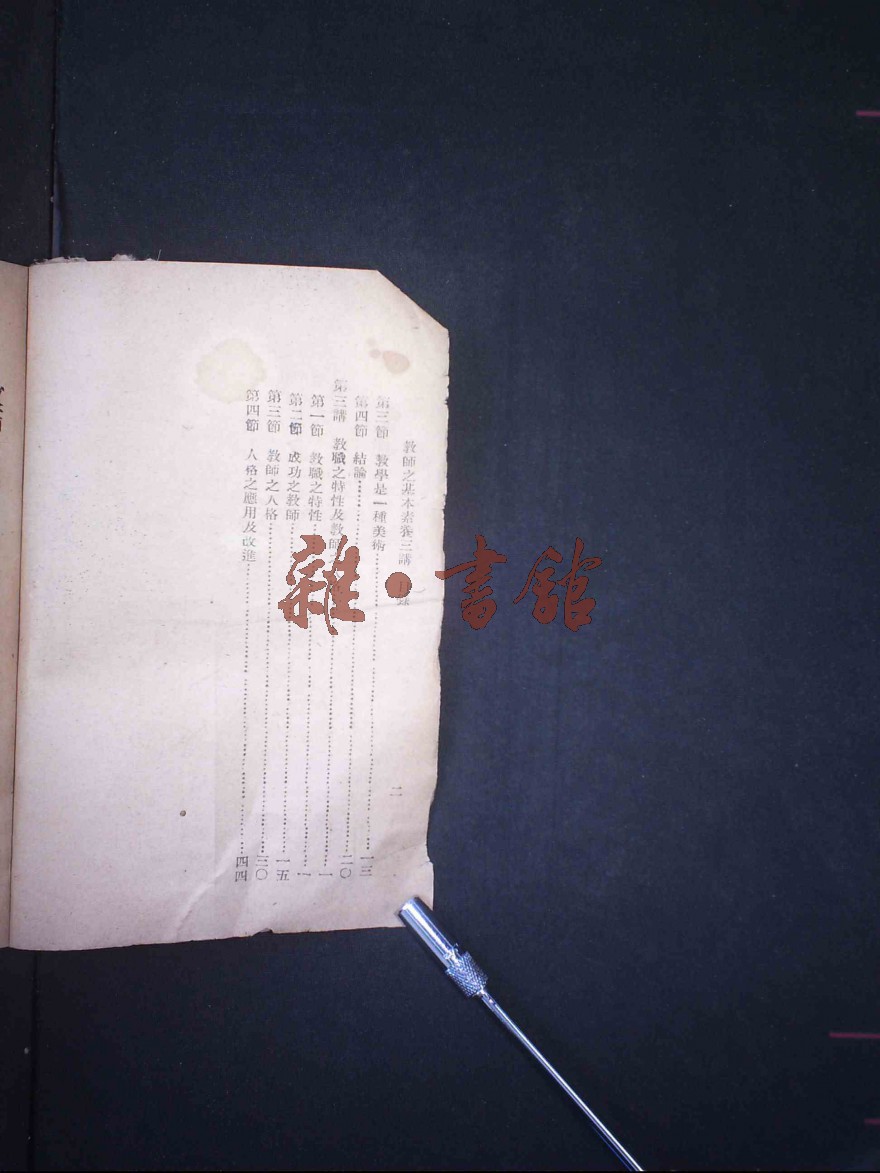 教師之基本素養三講 目錄
二
第三節 教學是一種美術……一三
第四節 結論……二〇
第三講 教職之特性及教師……一
第一節 教職之特性……一
第二節 成功之教師……一五
第三節 教師之人格……三〇
第四節 人格之應用及改進……四四
雜·書館